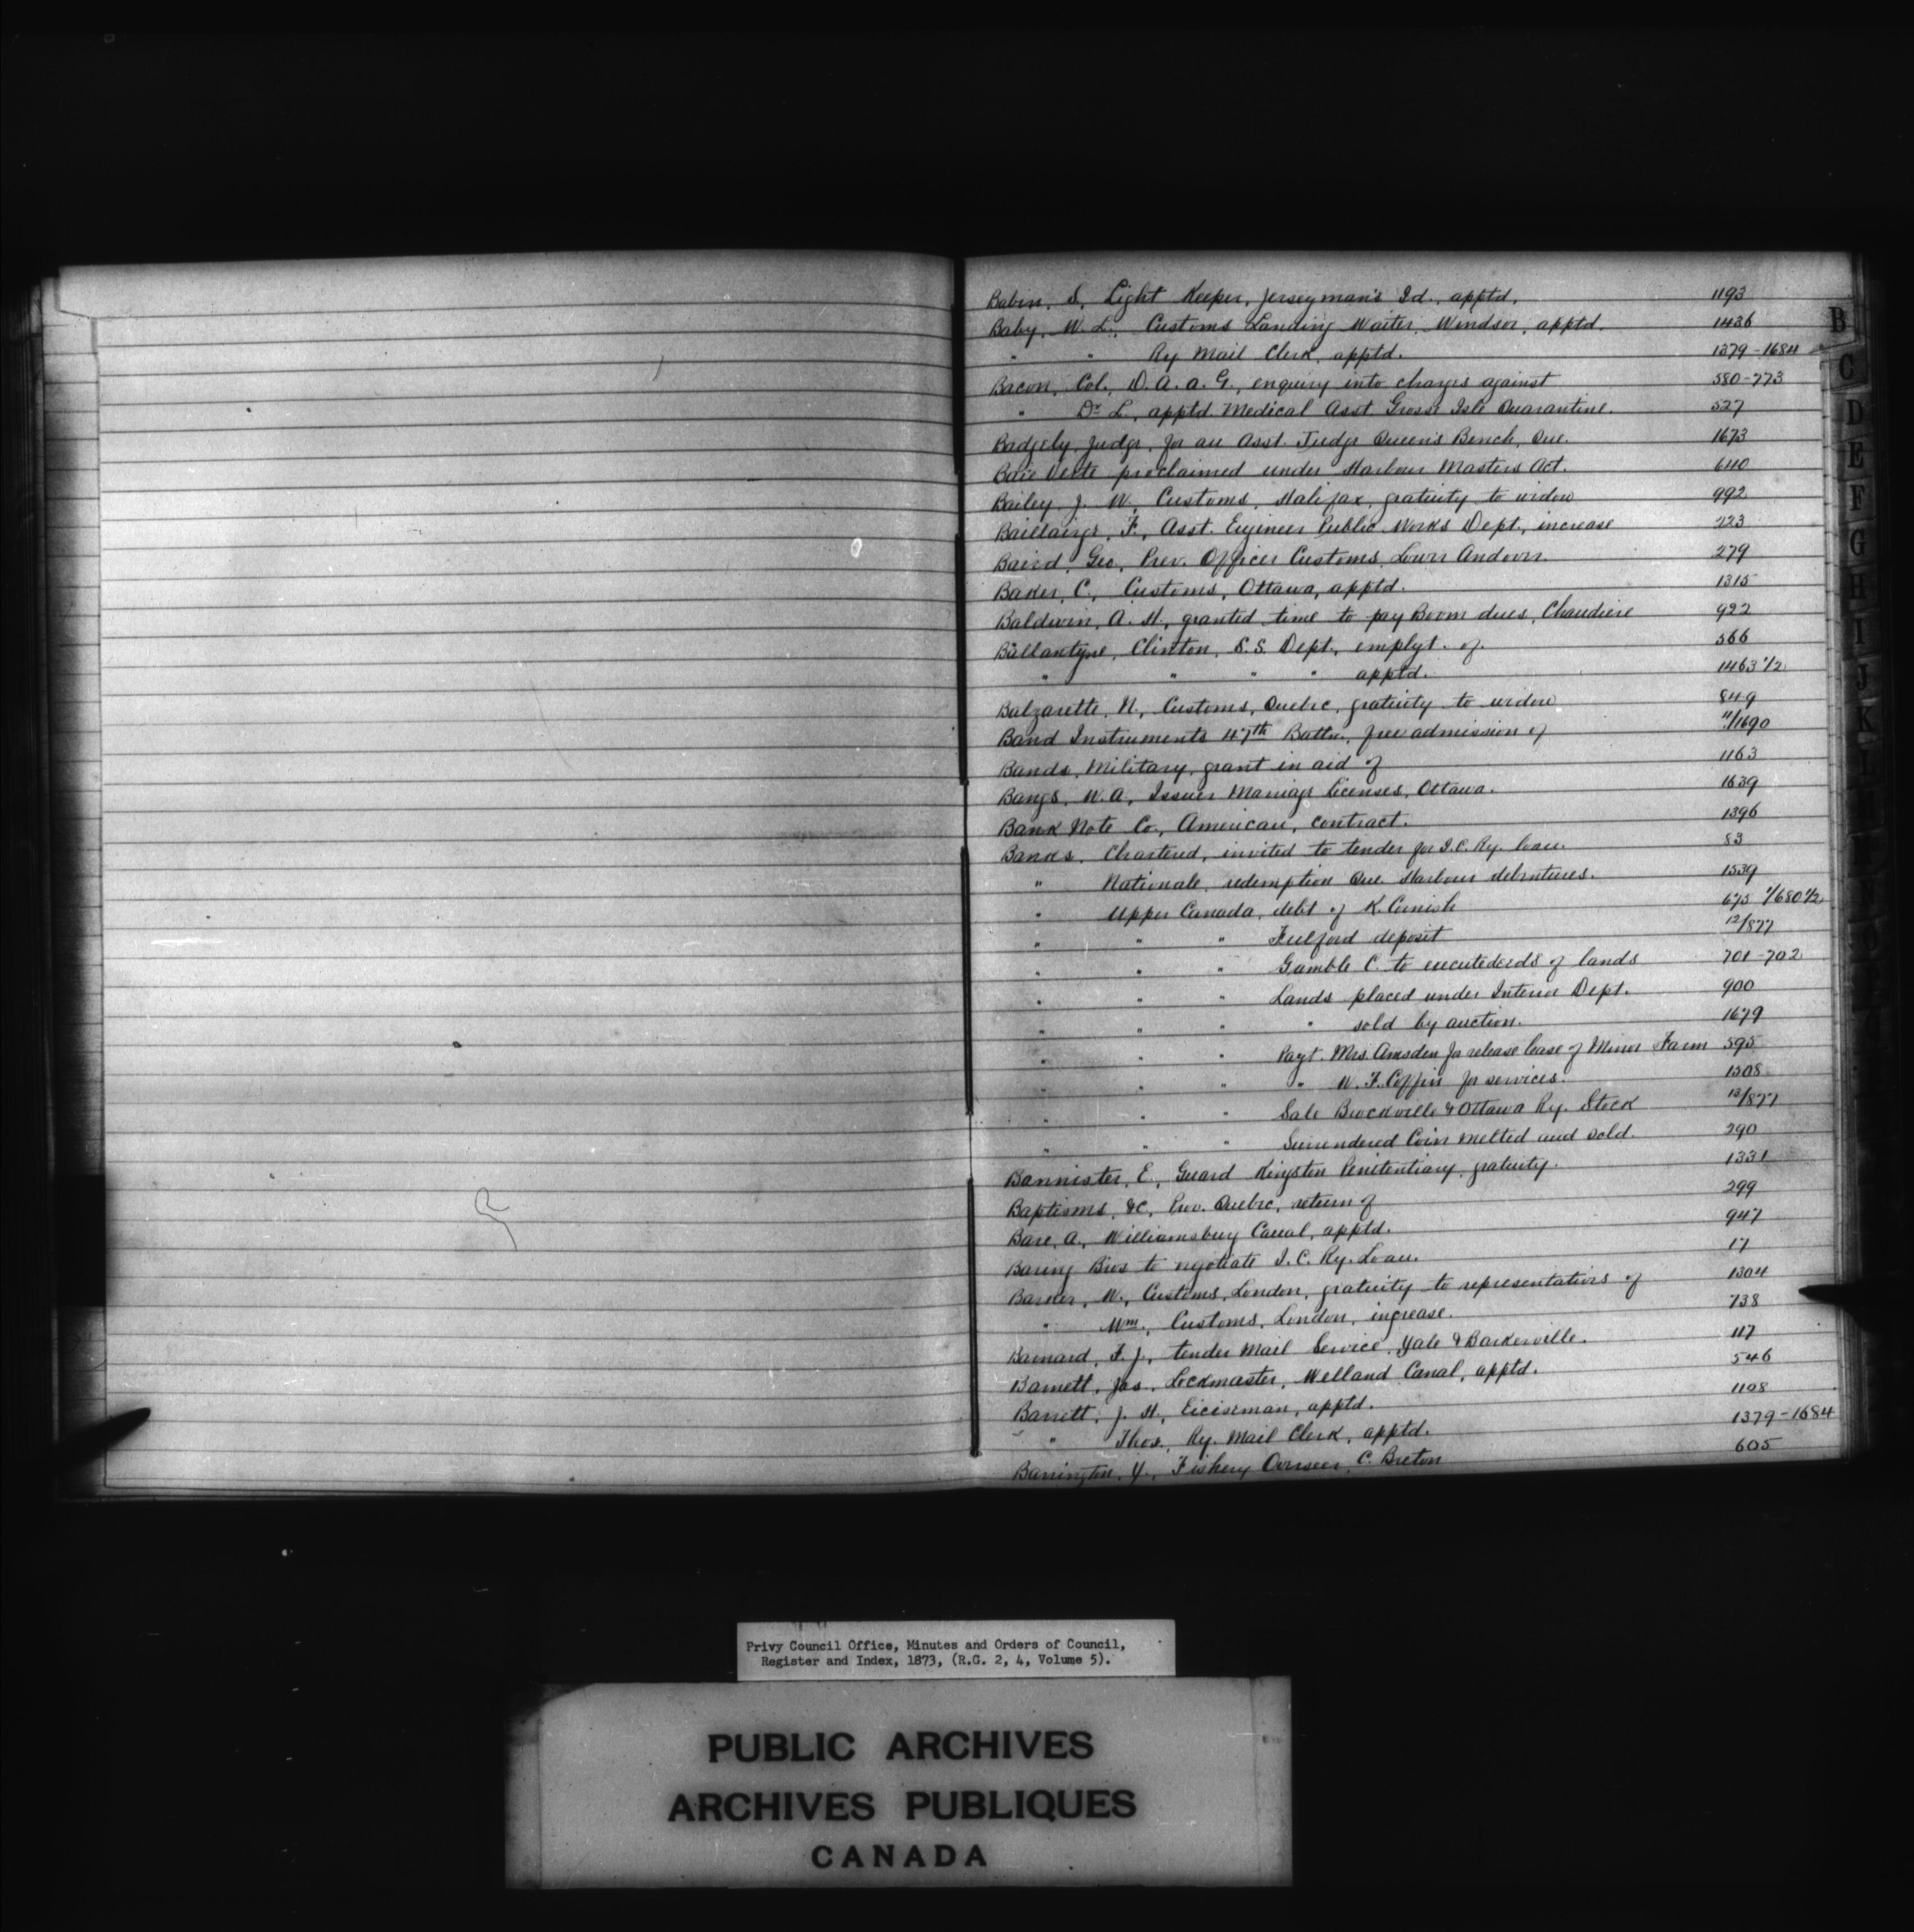 Babin, S, Light Keeper, Jerseyman's Id., apptd. 1193
Baby, W. L., Customs Landing Waiter, Windsor, apptd. 1436
" " Ry Mail Clerk, apptd. 1379-1684
Bacon, Col., D. A. A. G., enquiry into charges against 580-773
" Dr L., apptd. Medical Asst. Grosse Isle Quarantine. 527
Badgely, Judge, for an Asst. Judge Queen's Bench, Que. 1673
Baie Verte proclaimed under Harbour Masters Act. 640
Bailey, J. W., Customs, Halifax, gratuity to widow 992
Baillairge, F., Asst. Engineer Public Works Dept., increase 223
Baird, Geo, Prev. Officer Customs, Lower Andover. 279
Baker, C., Customs, Ottawa, apptd. 1315
Baldwin, A. H., granted time to pay Boom dues, Chaudiere 922
Ballantyne, Clinton, S.S. Dept., emplyt. of. 566
" " " " apptd. 1463 1/2
Balzarette, N., Customs, Quebec, gratuity to widow 849
Band Instruments 47th Battn., free admission of 11/1690
Bands, Military, grant in aid of 1163
Bangs, W. A, Issuer Marriage Licenses, Ottawa. 1639
Bank Note Co., American, contract. 1396
Banks, Chartered, invited to tender for I.C. Ry. loan. 83
" Nationale, redemption Que. Harbour debentures. 1539
" Upper Canada, debt of K. Cornish 675 1/680 1/2
" " " Fulford deposit 12/877
" " " Gamble C. to execute deeds of lands 701-702
" " " Lands placed under Interior Dept. 900
" " " " sold by auction. 1679
" " " Payt. Mrs. Amsden for release lease of Minor Farm 595
" " " " W. F. Coffin for services. 1508
" " " Sale Brockville & Ottawa Ry. Stock 13/877
" " " Surrendered Coin melted and sold. 290
Bannister, E., Guard Kingston Penitentiary, gratuity. 1331
Baptisms, &c, Prov. Quebec, return of 299
Bare, A., Williamsburg Canal, apptd. 947
Baring Bros to negotiate I. C. Ry. Loan. 17
Barker, W., Customs, London, gratuity to representatives of 1304
" Wm., Customs, London, increase. 738
Barnard, F. J., tender Mail Service, Yale & Barkerville. 117
Barnett, Jas., Lockmaster, Welland Canal, apptd. 546
Barrett, J. H., Exciseman, apptd. 1108
" Thos., Ry. Mail Clerk, apptd. 1379-1684
Barrington, Y., Fishery Overseer, C. Breton 605
B
C
D
E
F
G
H
I
J
K
Privy Council Office, Minutes and Orders of Council,
Register and Index, 1873, (R.G. 2, 4, Volume 5).
PUBLIC ARCHIVES
ARCHIVES PUBLIQUES
CANADA